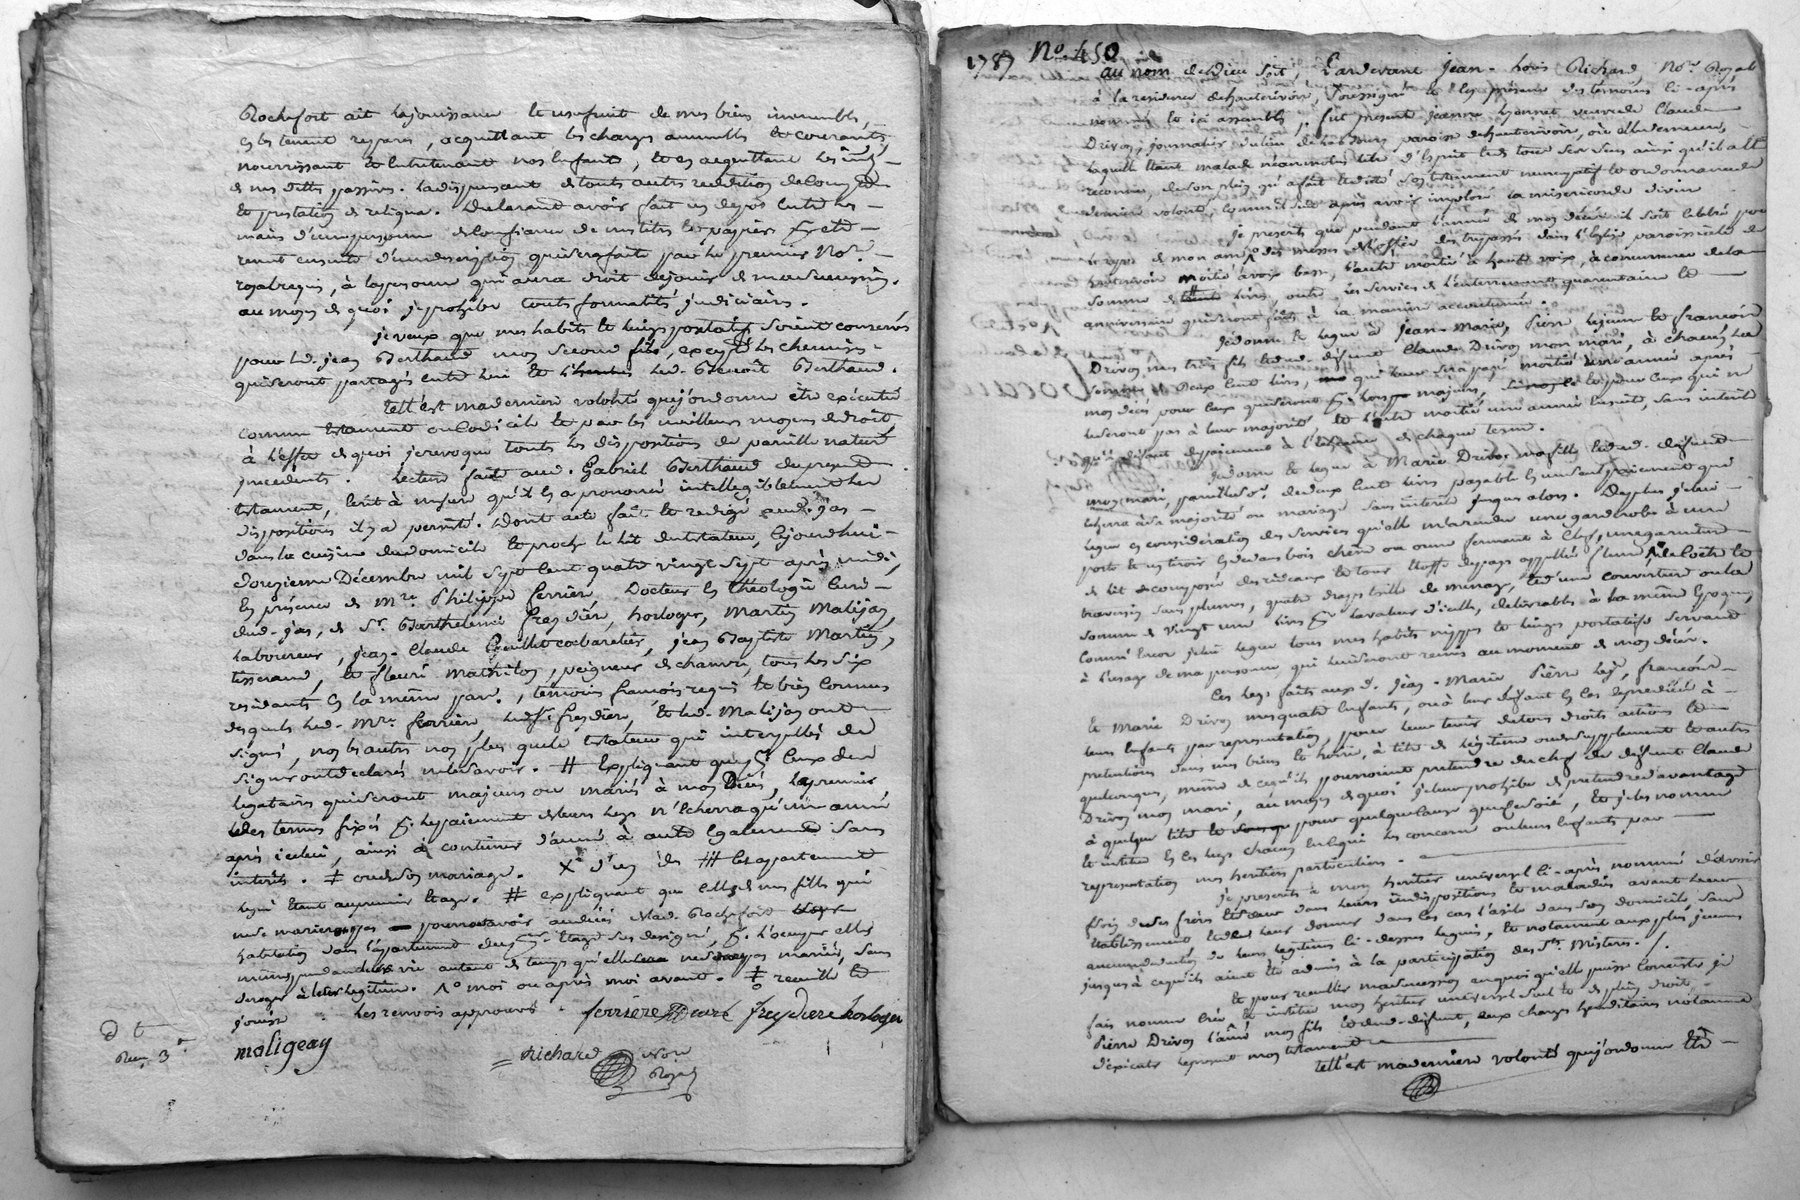 Rochefort ait la jouissance et usufruit de mes biens immeubles,
en les tenant reparés, acquittant les charges annuelles et courantes
nourrissant et entretenant nos enfants, et en acquittant les
de mes dettes passives. La dispensant de touts autres reddition de compte
et prestation de reliqua. Declarant avoir fait un depos entre les
mains d'une personne de confiance de mes titres et papiers
ensuite d'une description qui sera faite par le premier No.re
royal requis, à la personne qui aura droit de jouir de ma succession,
au moyen de quoi je prohibe touts formalités judiciaires.
je veux que mes habits et linges portatifs soient conservés
pour led. jean Berthaud mon second fils, excepté les chemises
qui seront partagés entre lui et led. Benoît Berthaud.
tell'est ma derniere volonté que j'ordonne être exécutée
comme testament ou codicile et par les meilleurs moyens de droit,
à l'effet de quoi je revoque touts les dispositions de pareille nature
précédents. Lecture faite aud. Gabriel Berthaud du present
testament, écrit à mesure qu'il en a prononcé intelligiblement les
dispositions il y a persisté. Dont acte fait et redigé aud. jas
dans la cuisine du domicile et proche le lit du testateur, cejourd'hui
douzieme Décembre mil sept cent quatre vingt sept après midi,
en présence de M.re Philippe ferriere Docteur en théologie curé
dud. jas, de S.r Barthelemi fresdiere, horloger, Martin Malijay,
laboureur, jean-Claude cabaretier, jean Baptiste Martin,
tisserand, et fleuri Mathilon, peigneur de chanvre, tous les six
residants en la même par. temoins francois requis et bien connus
desquels led. M.re ferriere, led. S.r fresdiere, et led. Malijay ont
signé, non les autres non plus que le testateur qui interpellés de
signer ont declarés ne le savoir. # Expliquant que ceux des
legataires qui seront majeurs ou mariés à mon décès, le premier
des termes fixés le paiement de leurs legs n'echerra qu'une année
après icelui, ainsi à continuer d'année à autre egalement sans
interêts. ‡ ou de son mariage. X d'un des # les appartement
étant au premier etage. # expliquant que celles de mes filles qui
ne se marieront pas pourront avoir avec lad. Rochefort leur
habitation dans l'appartement de etage sus designé, l'occuper elles
mêmes pendant leur vie autant de temps qu'elles ne seront pas mariées, sans
deroger à leur legitime. 1° moi ou après moi avant. ‡ recueille et
jouisse les renvois approuvés. ferriere curé fresdiere horloger
moligeay
Richard Not.re
Royal
Reçu 3
1787 N° 450
au nom de Dieu soit, Pardevant jean-Louis Richard, No.re Royal
à la residence de hauterivoire, soussigné et en presence des temoins ci-après
nommés et ici assemblés, fut presente jeanne veuve de Claude
Drivon, journalier du lieu de paroisse de hauterivoire, où elle demeure,
laquelle étant malade néanmoins libre d'esprit et de tous ses sens ainsi qu'il a été
reconnu, de son plein gré a fait et dicté son testament nuncupatif et ordonnance de
derniere volonté, comme suit après avoir imploré la misericorde divine
je prescris que pendant l'année de mon décès il soit celebré pour
le repos de mon ame des messes de l'office des trepassés dans l'eglise paroissiale de
hauterivoire moitié à voix basse, l'autre moitié à haute voix, à concurrence de la
somme de livres, outre les services de l'enterrement quarantaine et
anniversaire qui seront faits à la maniere accoutumée.
je donne et legue à jean-Marie, Pierre le jeune et francois
Drivon, mes trois fils et dud. défunt Claude Drivon mon mari, à chacun, la
somme de Deux cent livres, qui leur sera payée moitié une année après
mon décès pour ceux qui seront majeurs, et pour ceux qui ne
le seront pas à leur majorité et l'autre moitié une année ensuite, sans interêt
qu'à défaut de paiement à l'echeance de chaque terme.
je donne et legue à Marie Drivon ma fille et dud. défunt
mon mari, pareille somme de deux cent livres payable en un seul paiement qui
echerra à sa majorité ou mariage sans interêt jusques alors. De plus je lui
legue en considération des services qu'elle m'a rendu une garderobe à une
porte et un tiroir en dedans bois chêne ou orme fermant à clef, une garniture
de lit composée des rideaux et tour etoffe de pays appellée
traversin sans plumes, quatre draps toille de menage, et d'une couverture ou la
somme de Vingt une livres en la valeur d'icelle, delivrables à la même époque,
comme encor je lui legue tous mes habits nippes et linges portatifs servant
à l'usage de ma personne, qui lui seront remis au moment de mon décès.
Ces legs faits aux d. jean-Marie Pierre le j.e, francois
et Marie Drivon mes quatre enfants, ou à leur défaut en cas de prédécès à
leurs enfants par representation, pour leur tenir de tous droits actions et
pretentions dans mes biens et hoirie, à titre de legitime ou de supplement et autres
quelconques, même de ce qu'ils pourroient pretendre du chef du défunt Claude
Drivon mon mari, au moyen de quoi je leur prohibe de pretendre d'avantage
à quelque titre et pour quelque cause que ce soit, et je les nomme
et institue en ces legs chacun en ce qui les concerne ou leurs enfants par
representation mes heritiers particuliers.
je prescris à mon heritier universel ci-après nommé d'avoir
soin de ses freres et soeur dans leurs indispositions et maladies avant leur
etablissement et de leur donner dans les cas l'asile dans son domicile, sans
aucune de leurs legitimes ci-dessus legués, et notament aux plus jeunes
jusqu'à ce qu'ils aient été admis à la participation des S.ts Misteres.
et pour recueillir ma succession en quoi qu'elle puisse consister je
fais nomme crée et institue mon heritier universel seul et de plein droit
Pierre Drivon l'aîné mon fils et dud. défunt, aux charges hereditaires notamment
d'executer le present mon testament
tell'est ma derniere volonté que j'ordonne être